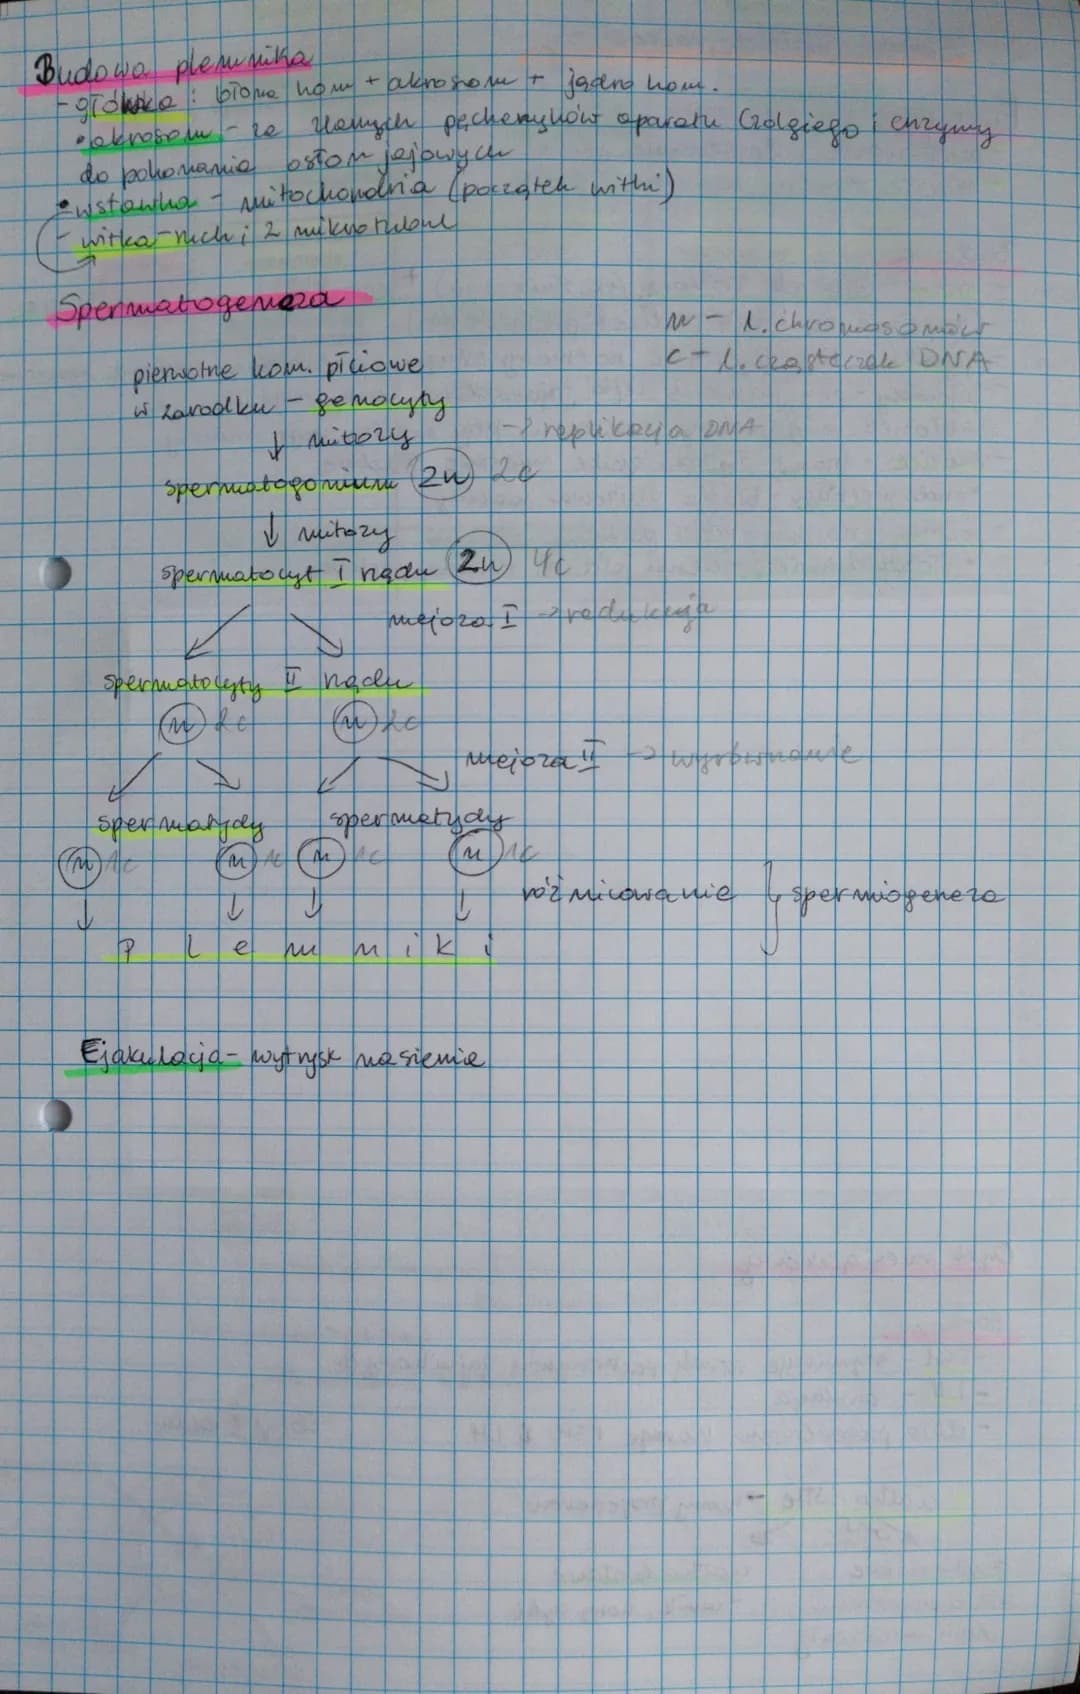 Budowa plemnika
- główka : błona kom + akrosom + jądro kom.
• akrosom - ze zlanych pęcherzyków aparatu Golgiego i enzymy
do pokonania osłon jajowych
• wstawka - mitochondria (początek witki)
- witka - ruch i 2 mikrotubul
Spermatogeneza
n - l. chromosomów
c - l. cząsteczek DNA
pierwotne kom. płciowe
w zarodku - gonocyty
↓ mitozy -> replikacja DNA
spermatogonium 2n 2c
↓ mitozy
spermatocyt I rzędu 2n 4c
mejoza I -> redukcja
spermatocyty II rzędu
n 2c n 2c
mejoza II -> wyrównanie
spermatydy spermatydy
n 1c n 1c n 1c n 1c
↓ ↓ ↓ ↓ różnicowanie } spermiogeneza
P l e m n i k i
Ejakulacja - wytrysk nasienia